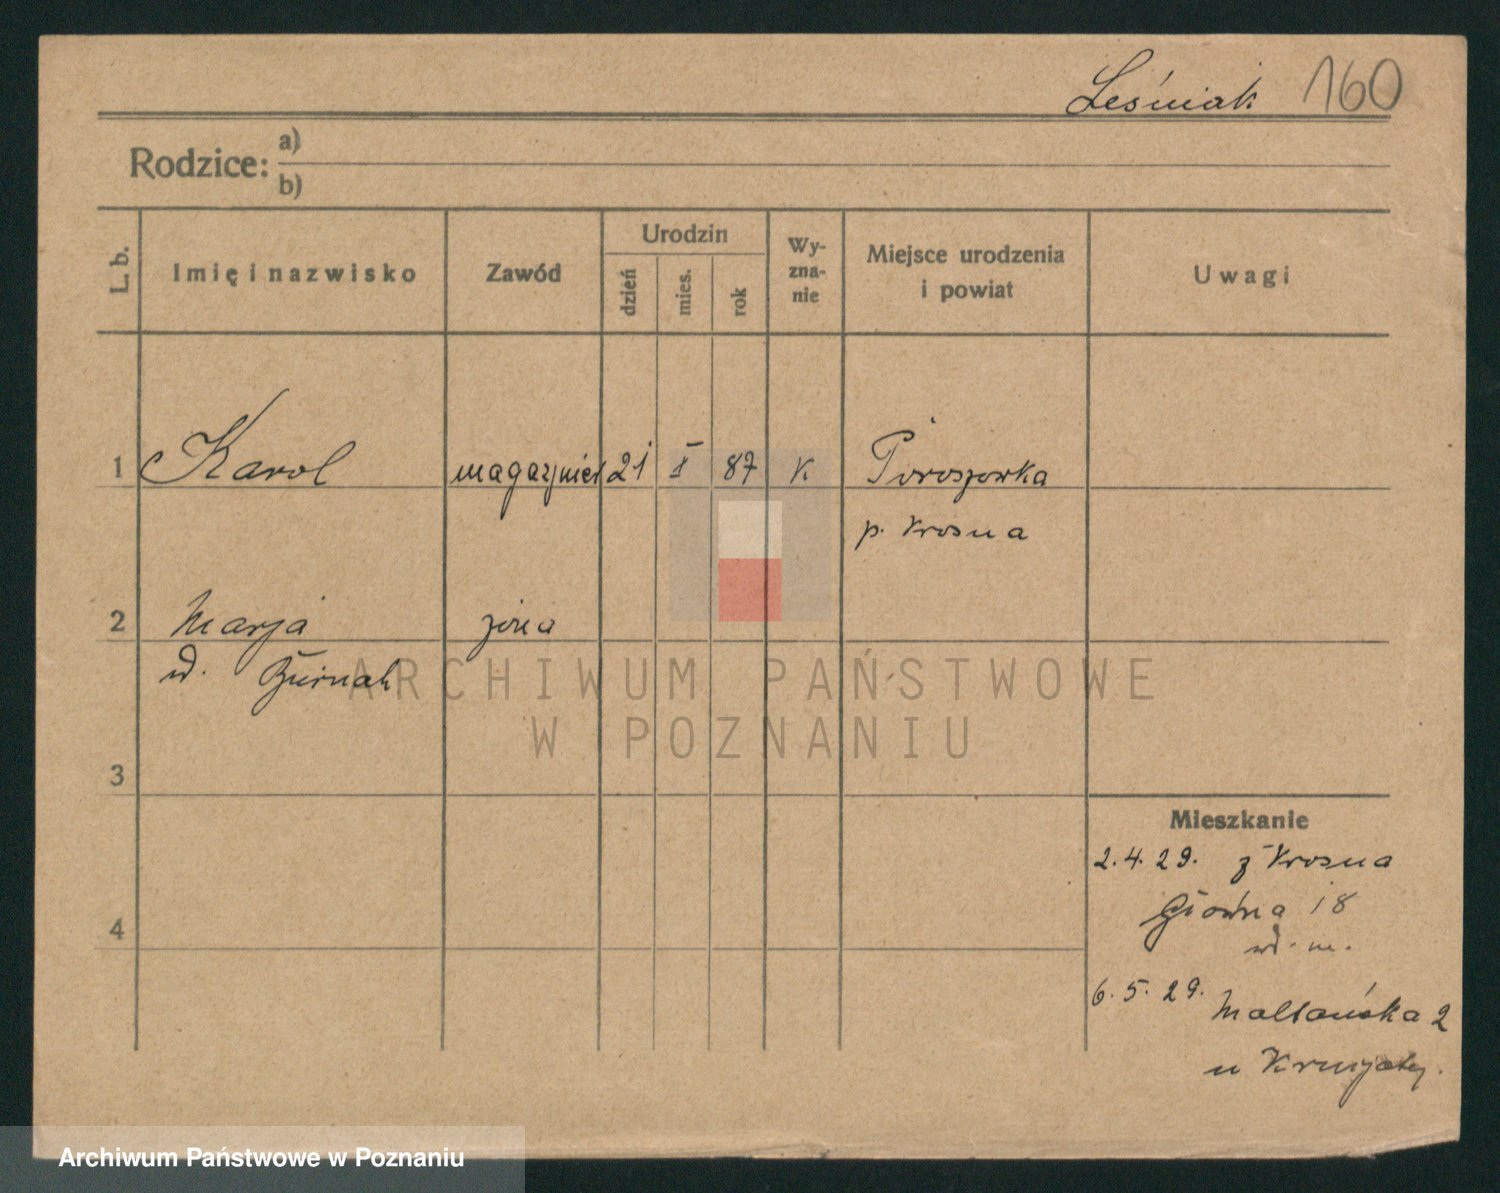 Leśniak 160
Rodzice: a)
b)
L. b.
Imię i nazwisko
Zawód
Urodzin
dzień
mies.
rok
Wy-
zna-
nie
Miejsce urodzenia
i powiat
Uwagi
1 Karol magazynier 21 X 87 K Toroszowka
p. Krosna
2 Marja żona
w. Żurnak
3
Mieszkanie
2.4.29. z Krosna
Główna 18
4
w. m.
6.5.29. Maltańska 2
u
ARCHIWUM PAŃSTWOWE
W POZNANIU
Archiwum Państwowe w Poznaniu